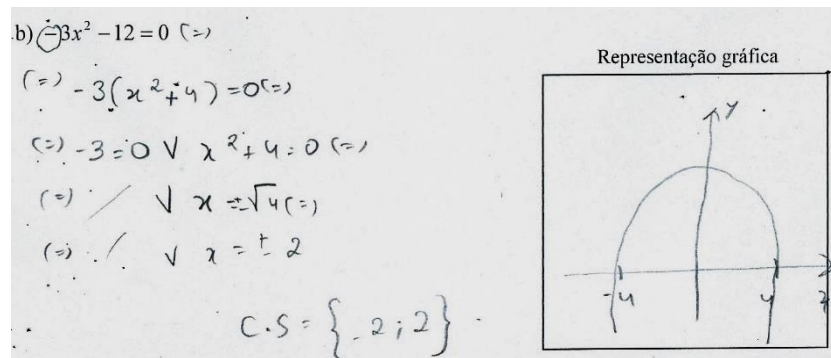 b) -3x² - 12 = 0 (=)
(=) -3(x² + 4) = 0 (=)
(=) -3 = 0 ∨ x² + 4 = 0 (=)
(=) / ∨ x = ±√4 (=)
(=) / ∨ x = ± 2
C.S = {-2 ; 2}
Representação gráfica
y
-4 4